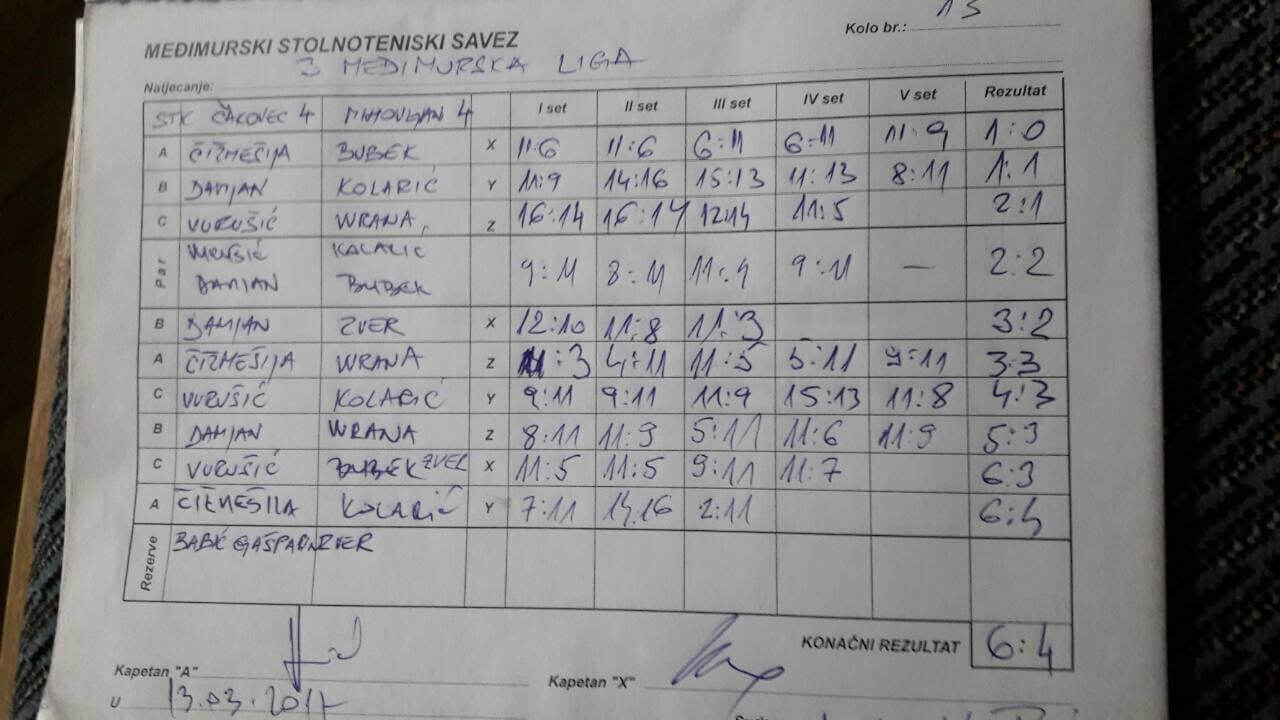 Kolo br.: 13
MEĐIMURSKI STOLNOTENISKI SAVEZ
Natjecanje: 3 MEĐIMURSKA LIGA
STK ČAKOVEC 4 MIHOVLJAN 4 I set II set III set IV set V set Rezultat
A ČIŽMEŠIJA BUBEK X 11:6 11:6 6:11 6:11 11:9 1:0
B DAMJAN KOLARIĆ Y 11:9 14:16 15:13 11:13 8:11 1:1
C VURUŠIĆ WRANA Z 16:14 16:14 12:14 11:5 2:1
Par VURUŠIĆ KOLARIĆ
DAMJAN BUBEK 9:11 8:11 11:4 9:11 — 2:2
B DAMJAN ZVER X 12:10 11:8 11:3 3:2
A ČIŽMEŠIJA WRANA Z 11:3 4:11 11:5 5:11 9:11 3:3
C VURUŠIĆ KOLARIĆ Y 9:11 9:11 11:9 15:13 11:8 4:3
B DAMJAN WRANA Z 8:11 11:9 5:11 11:6 11:9 5:3
C VURUŠIĆ BUBEK ZVER X 11:5 11:5 9:11 11:7 6:3
A ČIŽMEŠIJA KOLARIĆ Y 7:11 14:16 2:11 6:4
Rezerve BABIĆ ZVER
KONAČNI REZULTAT 6:4
Kapetan "A" Kapetan "X"
U 13.03.2017